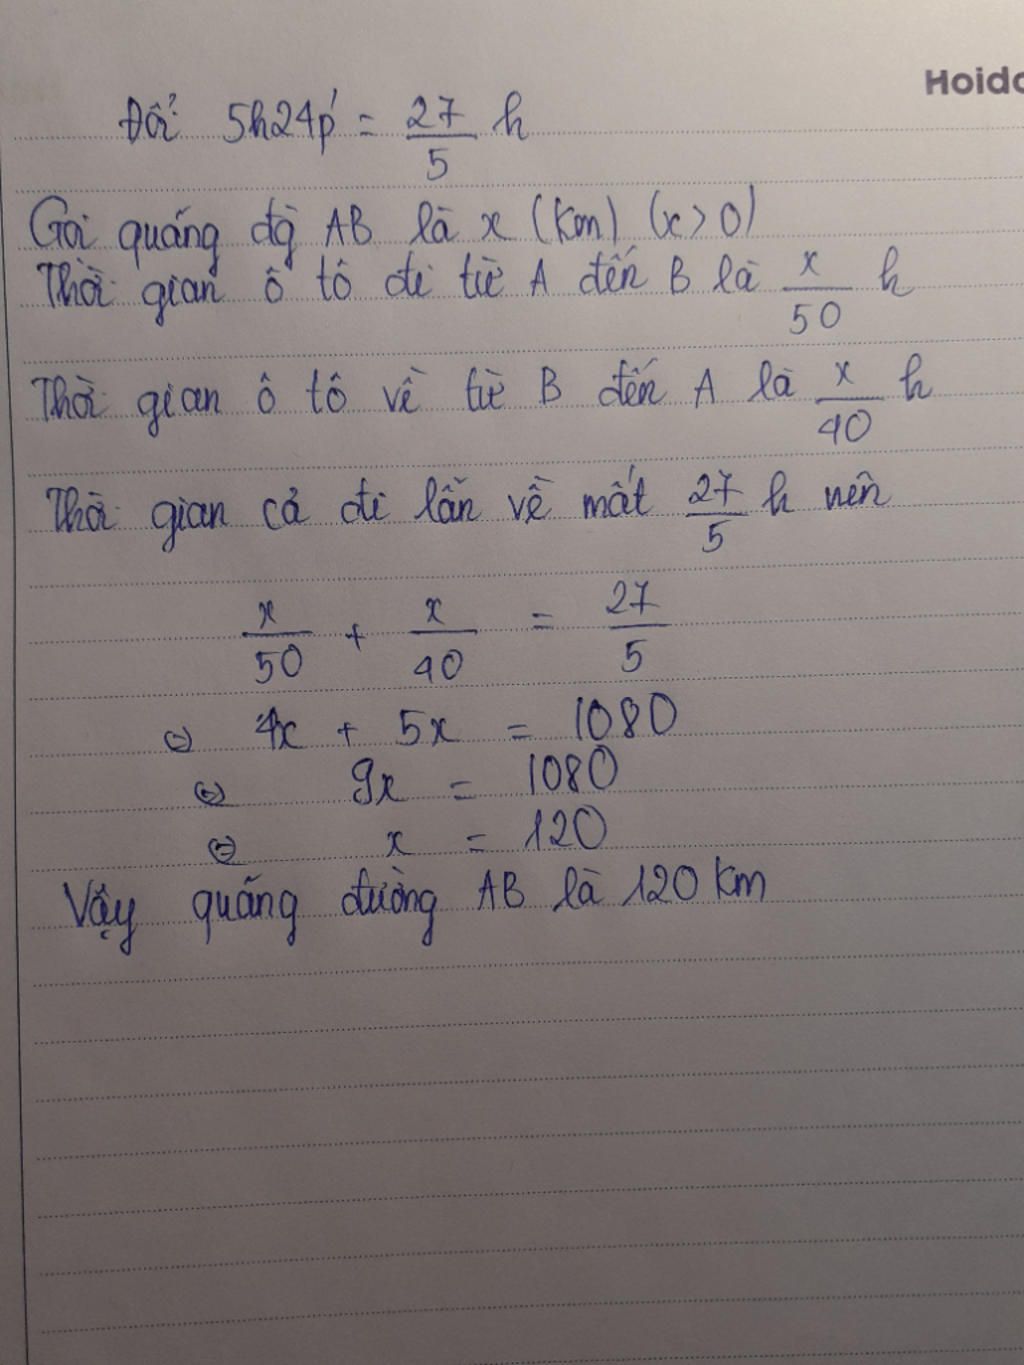 Hoido
Đổi 5h24p' = 27/5 h
Gọi quãng đg AB là x (Km) (x>0)
Thời gian ô tô đi từ A đến B là x/50 h
Thời gian ô tô về từ B đến A là x/40 h
Thời gian cả đi lẫn về mất 27/5 h nên
x/50 + x/40 = 27/5
⇔ 4x + 5x = 1080
⇔ 9x = 1080
⇔ x = 120
Vậy quãng đường AB là 120 Km